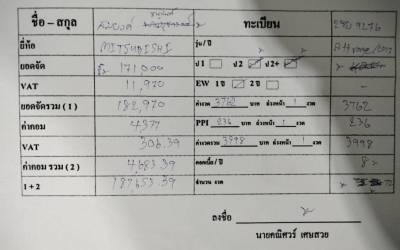 ชื่อ – สกุล ทะเบียน 9276
ยี่ห้อ MITSUBISHI รุ่น/ปี
ยอดจัด 171,000 ป1 ป2 ป2+
VAT 11,970 EW 1ปี 2ปี -
ยอดจัดรวม (1) 182,970 ค่างวด 3762 บาท ล่วงหน้า 1 งวด 3762
ค่าคอม 4377 PPI 236 บาท ล่วงหน้า 1 งวด 236
VAT 306.39 ค่างวดรวม 3998 บาท ล่วงหน้า 1 งวด 3998
ค่าคอม รวม (2) 4,683.39 ดอกเบี้ย / ปี 8
1+2 187653.39 จำนวน งวด
ลงชื่อ
นายคณิศวร์ เศษสวย